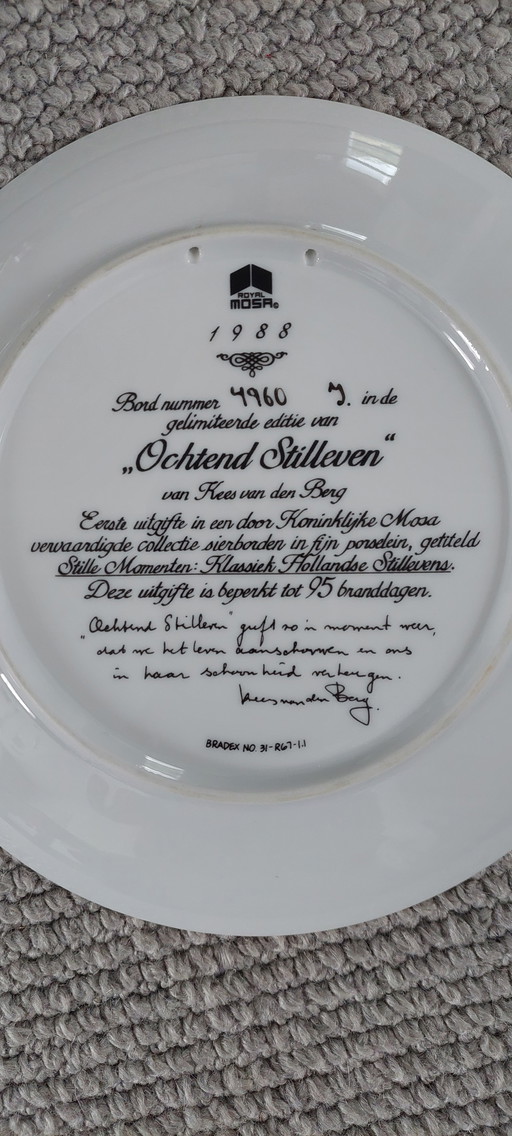 ROYAL
MOSA©
1988
Bord nummer 4960 J. in de
gelimiteerde editie van
„Ochtend Stilleven“
van Kees van den Berg
Eerste uitgifte in een door Koninklijke Mosa
vervaardigde collectie sierborden in fijn porselein, getiteld
Stille Momenten: Klassiek Hollandse Stillevens.
Deze uitgifte is beperkt tot 95 branddagen.
„Ochtend Stilleven" geeft zo'n moment weer,
dat we het leven aanschouwen en ons
in haar schoonheid verheugen.
Kees van den Berg.
BRADEX NO. 31-R67-1.1